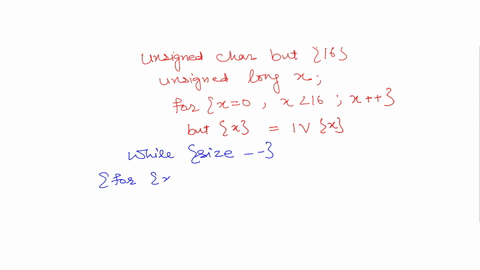 unsigned char but {16}
unsigned long x;
for {x=0, x<16; x++}
but {x} = IV {x}
while {size --}
{for {x